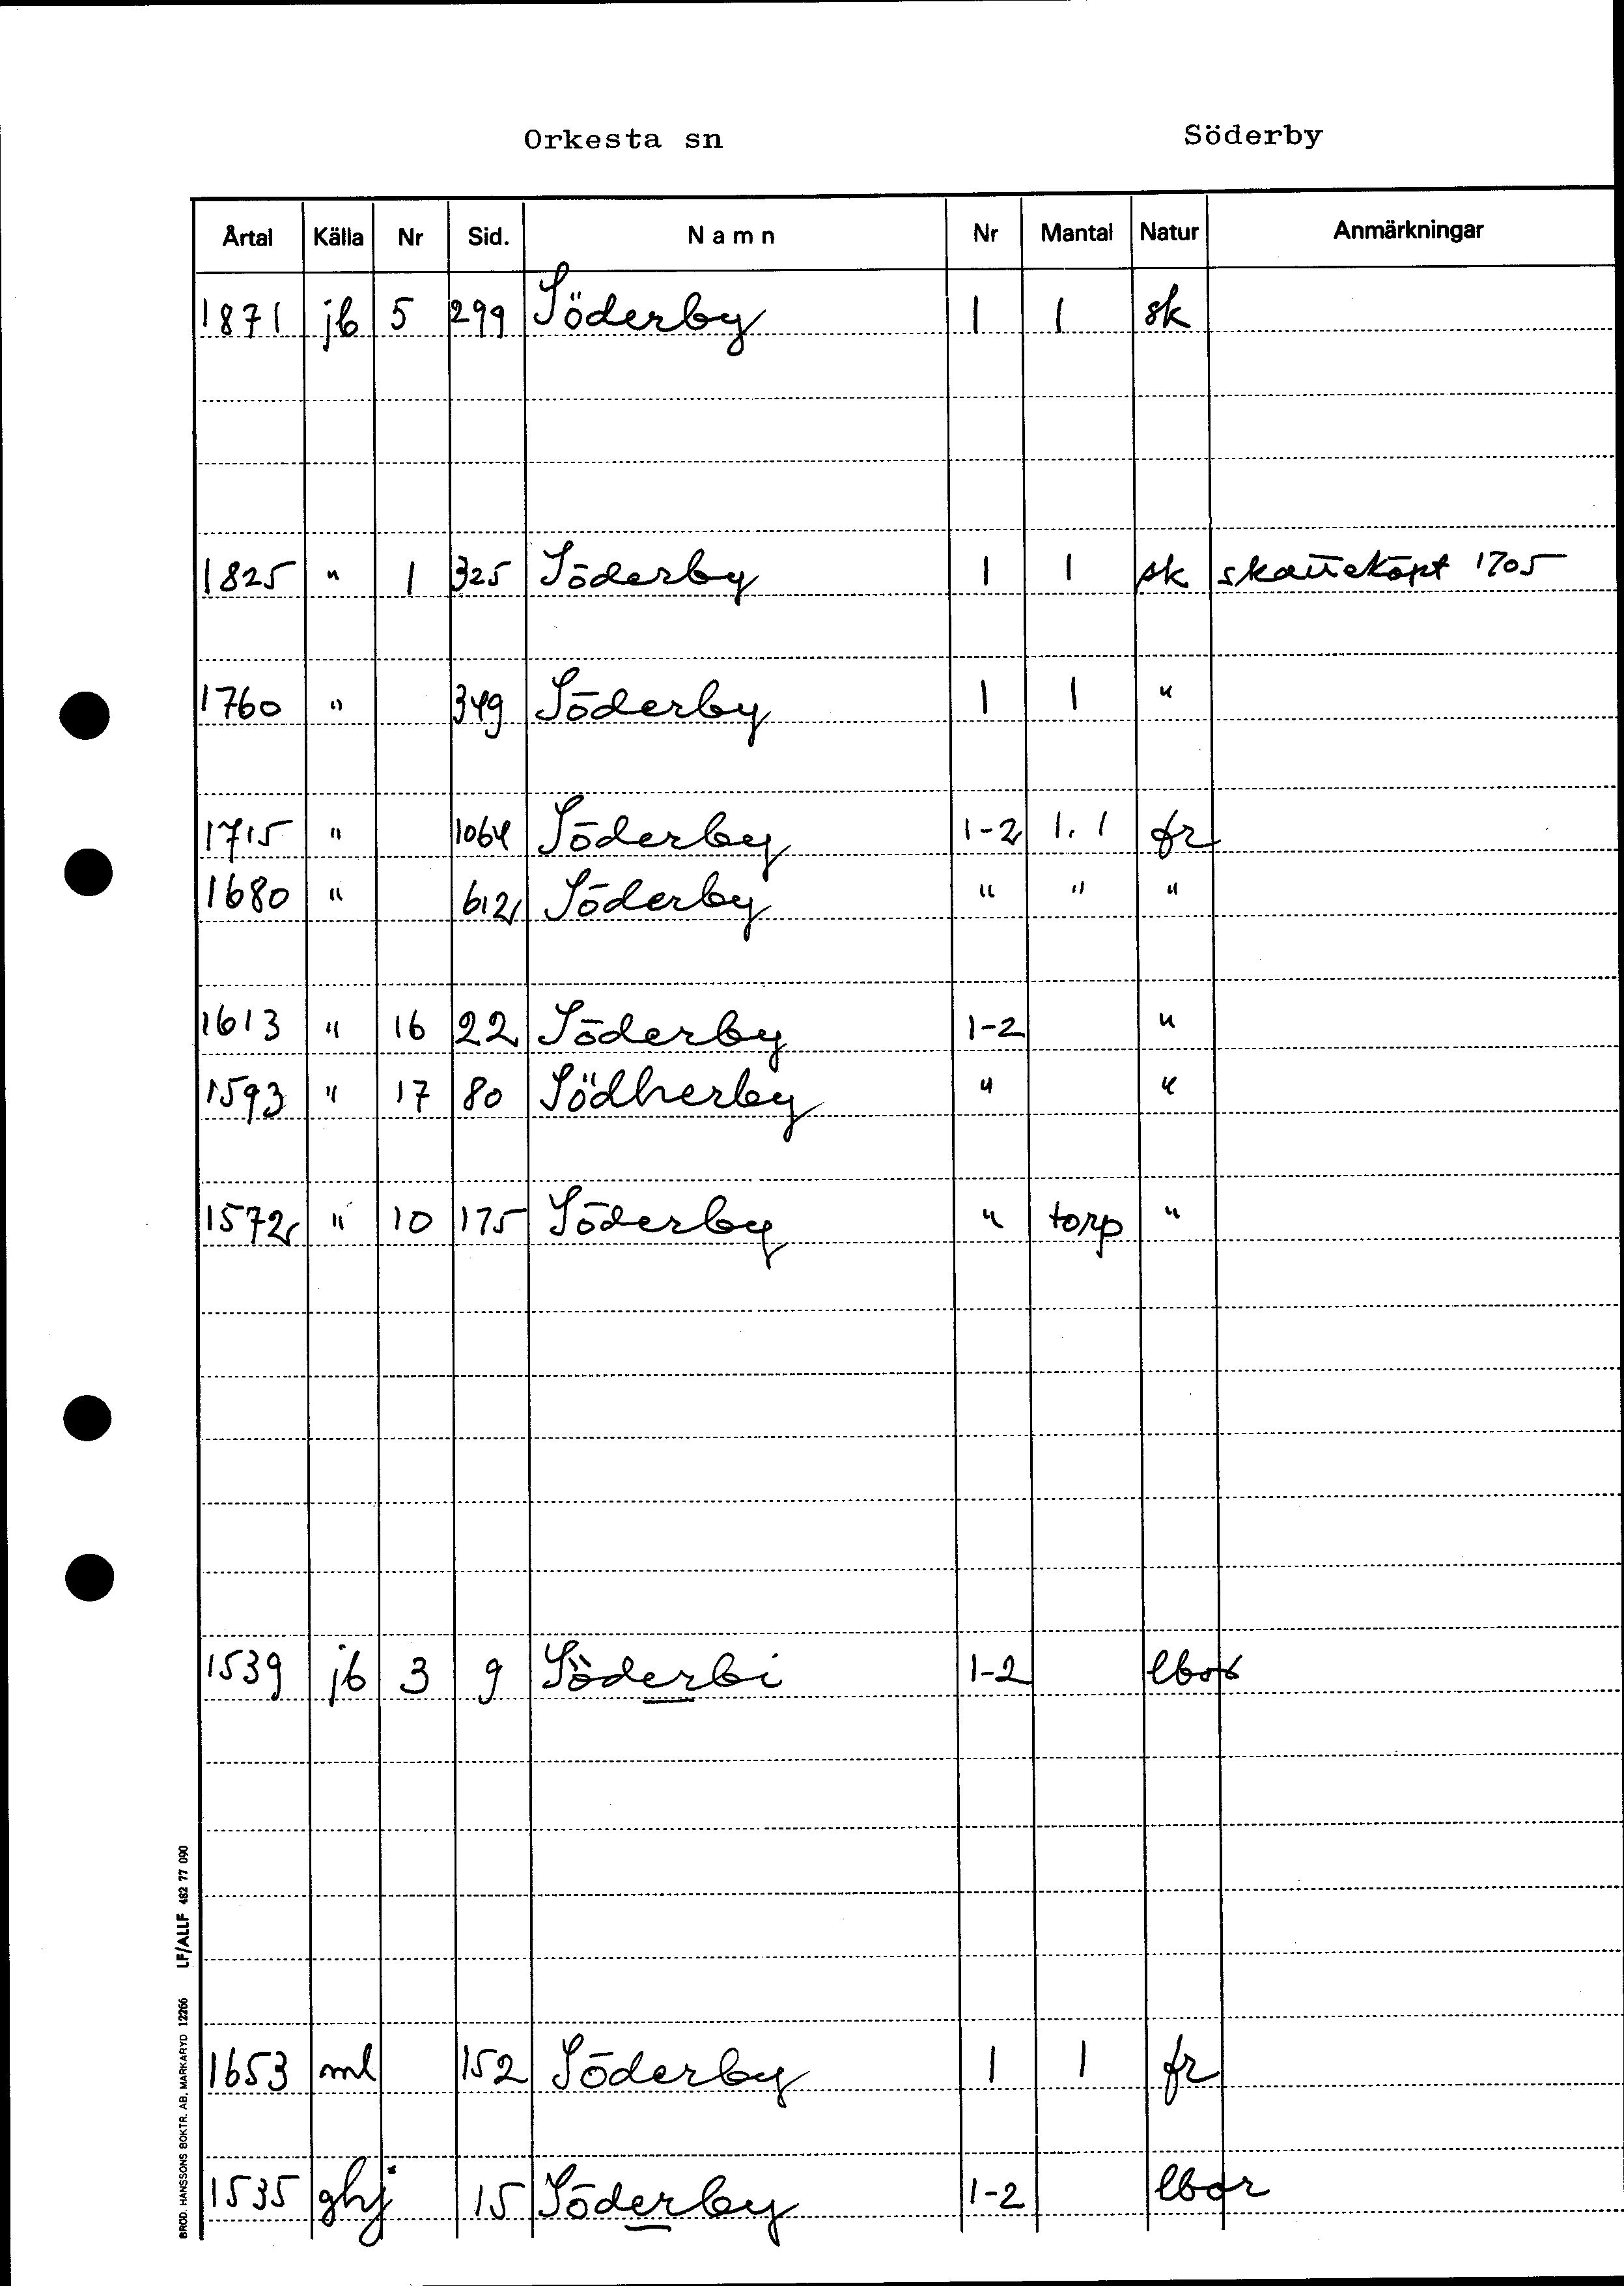 Orkesta sn Söderby
Årtal Källa Nr Sid. Namn Nr Mantal Natur Anmärkningar
1871 jb 5 299 Söderby 1 1 sk
1825 " 1 325 Söderby 1 1 sk skatteköpt 1705
1760 " 349 Söderby 1 1 "
1715 " 1064 Söderby 1-2 1, 1 fr
1680 " 612 Söderby " " "
1613 " 16 22 Söderby 1-2 "
1593 " 17 80 Södherby " "
1572 " 10 175 Söderby " torp "
1539 jb 3 9 Söderbi 1-2
1653 ml 152 Söderby 1 1 fr
1535 ghj 15 Söderby 1-2 lbor
BROD. HANSSONS BOKTR. AB, MARKARYD 12266 LF/ALLF 482 77 090